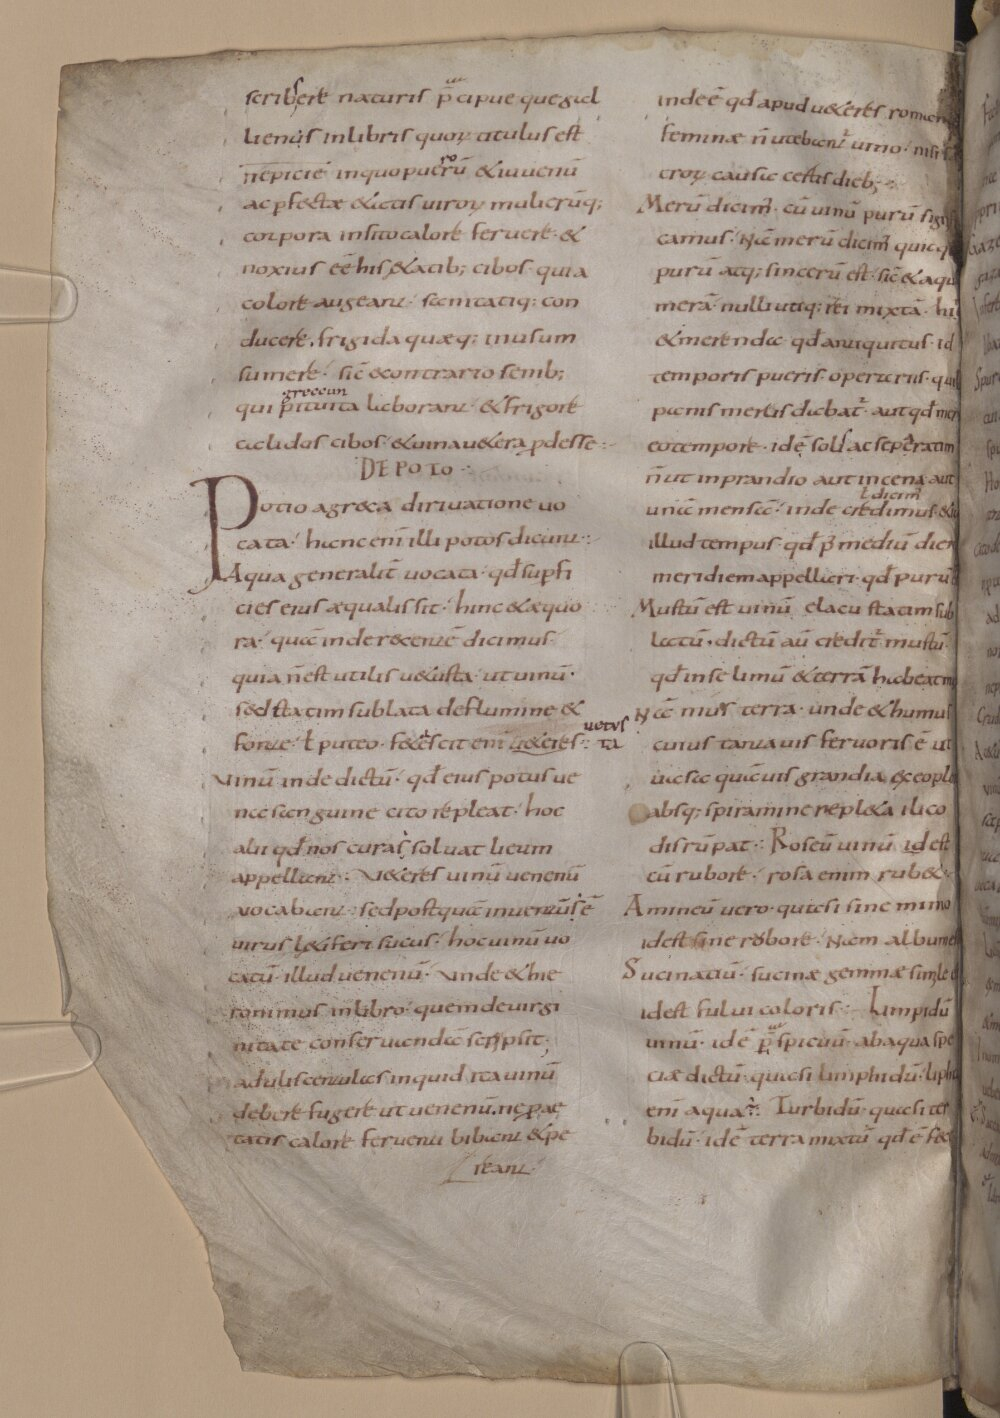 scribsere naturis p̄cipue que gul
lienus in libris quoꝝ titulus est
nepicie in quo puerorū & iuuenū
ac p̱fectæ ætatis uiroꝝ mulierūq;
corpora insito calore feruere· &
noxius eē his ætatib; cibos· qui a
calore augeant· siccitatiq; con
ducere, frigida quæq; in usum
sumere· sic̄ & contrario senib;
grecum
qui pituita laborant· & frigore
calidos cibos & uina uetera prodesse·:
DE POTO·:
Potio a greca diriuatione uo
cata· hanc enī illi potos dicunt·:
Aqua generalit̄ uocata· qd̄ sup̱fi
cies eius æqualis sit· hinc & æquo
ra· quā inde recentē dicimus·
quia ñ est utilis uetusta· ut uinū·
sed statim sublata de flumine &
uetus
fonte· ł puteo· fetescit enī ueteres·: ta
Vinū inde dictū· qd̄ eius potus ue
nas sanguine cito repleat· hoc
alii qd̄ nos curas soluat lieum
appellant·: Veteres uinū uenenū
uocabant·: sed postquā inuentus ē
uirus letiferi sucus· hoc uinū uo
catū· illud uenenū· Vnde & hie
ronimus in libro· quem de uirgi
nitate conseruanda scripsit·
adulescentulas inquid ita uinū
debere fugere ut uenenū, ne p̱ æ
tatis calore feruenti bibant & pe
reant·
inde ē qd̄ apud ueteres roman
feminæ ñ utebant̄ uino· nisi s
croꝝ causa certis dieb;·:
Merū dicim̄· cū uinū purū signifi
camus· Nā merū dicim̄ quicq
purū atq; sincerū est· sic̄ & aqu
merā· nulli utiq; rei mixtā· hi
& merenda· qd̄ antiquitus· id
temporis pueris· operariis· qui
panis merus dabat̄· aut qd̄ mer
eo tempore· idē soli ac separatim
ñ ut in prandio aut in cena aut
ł dicim̄
unā mensā· inde credimus &
illud tempus· qd̄ p̱ mediū diem
meridiem appellari· qd̄ purū
Mustū est uinū e lacu statim sub
latū· dictū aū credit̄ mustū·
qd̄ in se limū & terrā habeat m
Nā mus terra· unde & humus
cuius tanta uis feruoris ē ut
uasa quāuis grandia ex eo pl
absq; spiramine repleta ilico
disrūpat·: Roseū uinū id est
cū rubore· rosa enim rubet·
Amineū uero· quasi sine minio
id est sine robore· Nam album
Sucinatiū· sucinæ gemmæ simile
id est fului coloris·: Limpidū
uinū· id ē p̱spicuū· ab aqua spe
ciæ dictū· quasi limphidū· liph
enī aqua·: Turbidū· quasi ter
bidū· id ē terra mixtū qd̄ ē fec